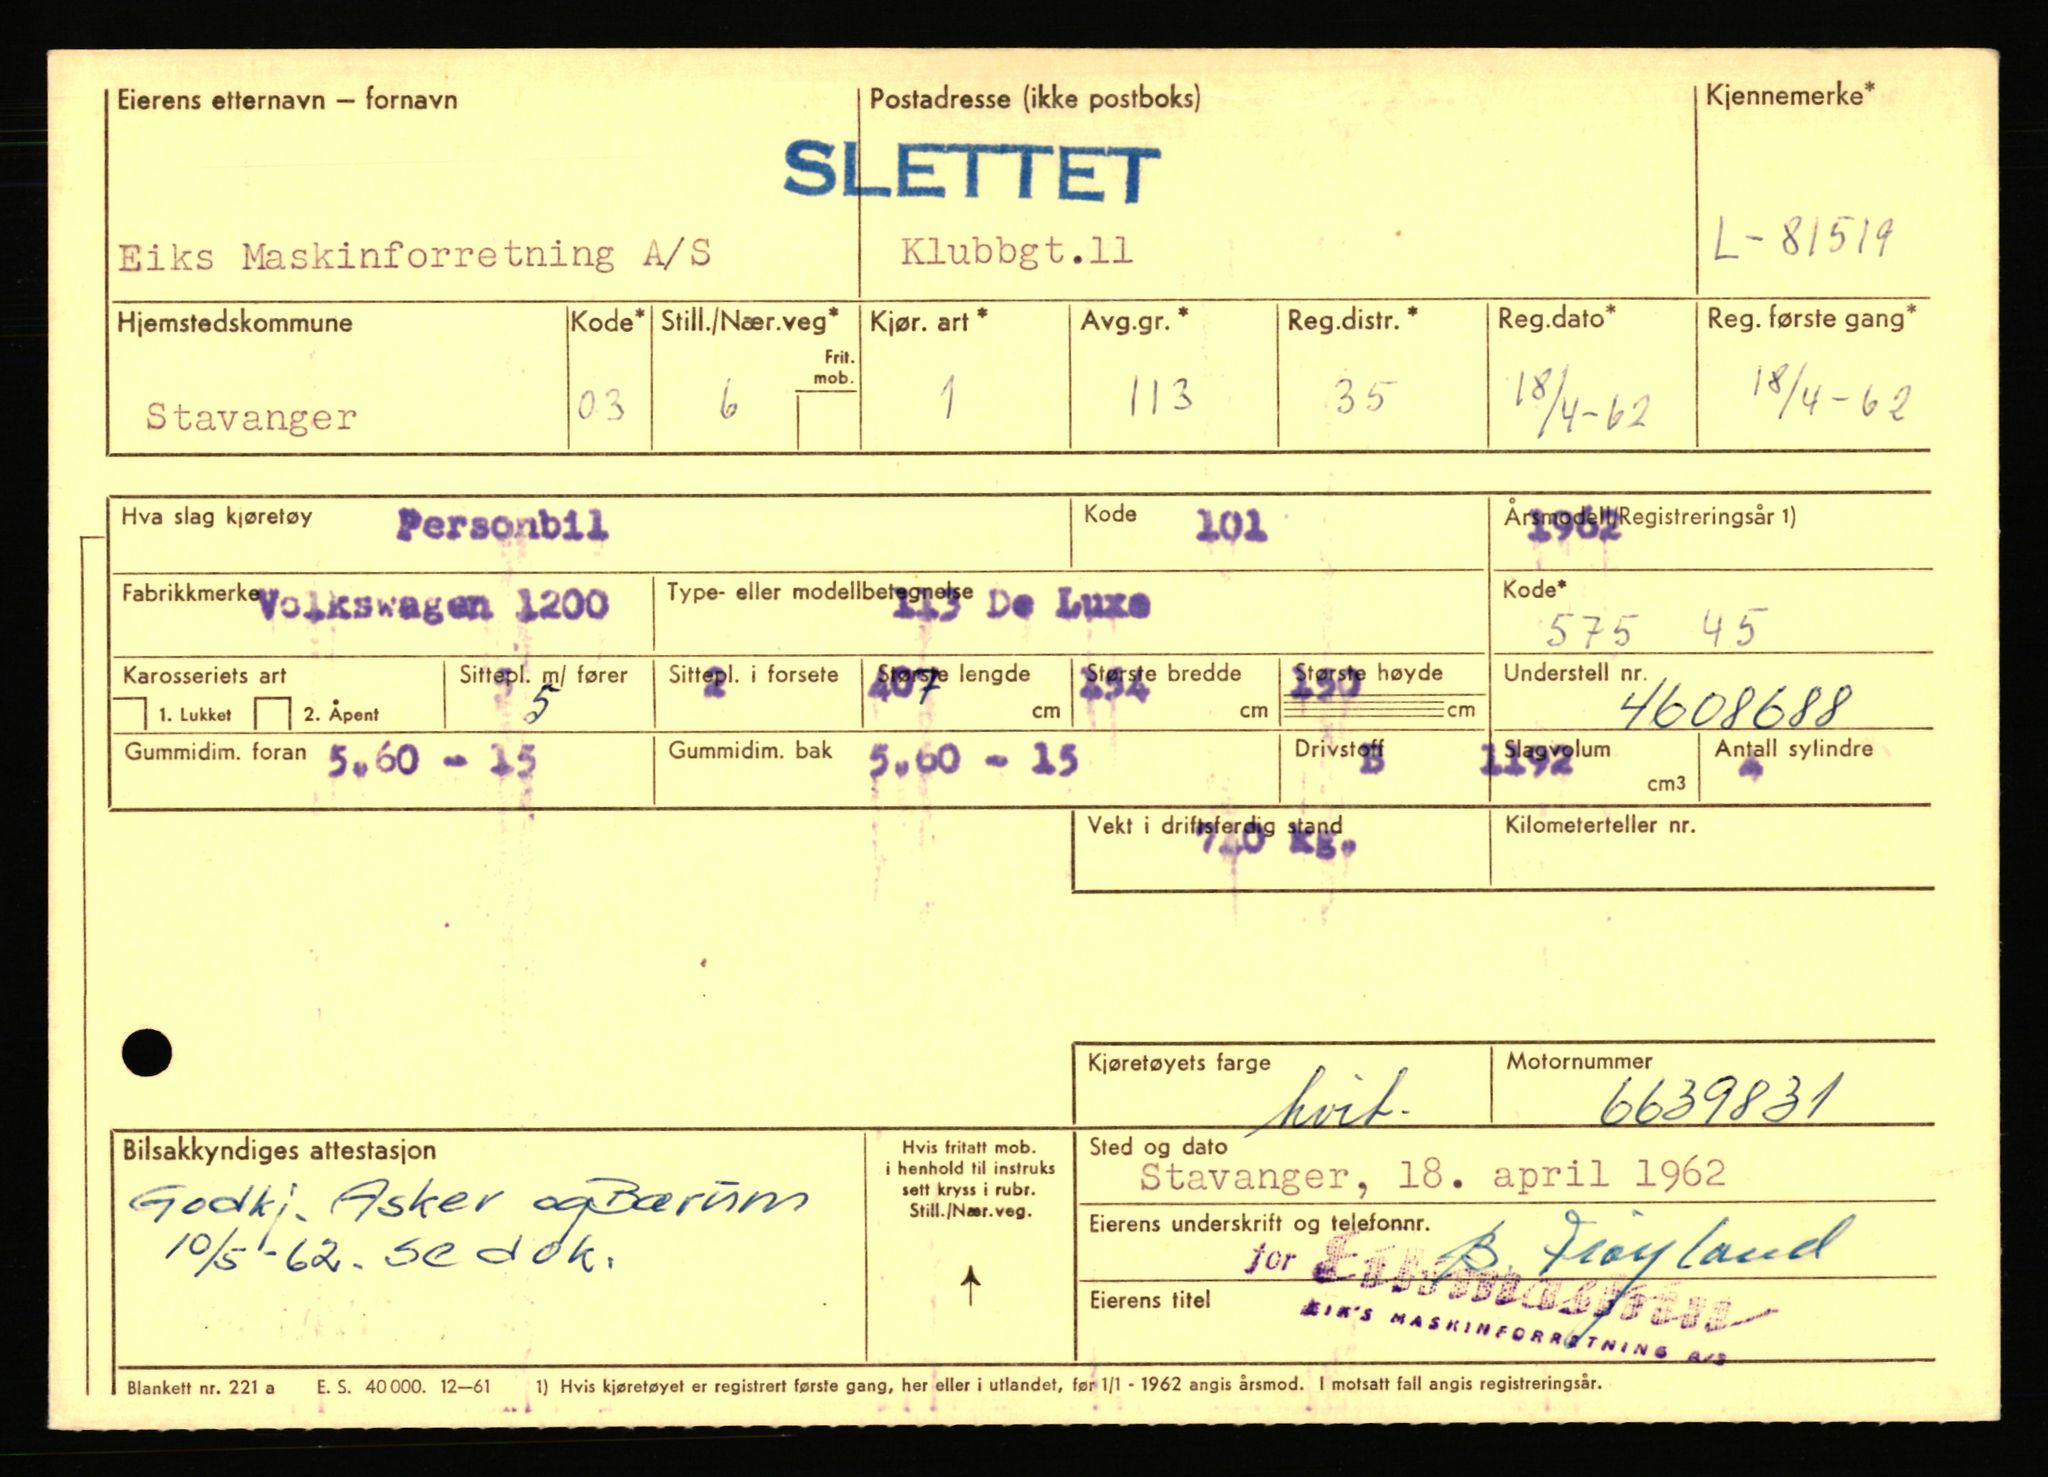 Eierens etternavn – fornavn
Postadresse (ikke postboks)
Kjennemerke*
SLETTET
Eiks Maskinforretning A/S
Klubbgt.11
L-81519
Hjemstedskommune
Kode*
Still./Nær.veg*
Kjør. art*
Avg.gr.*
Reg.distr.*
Reg.dato*
Reg. første gang*
Frit.
mob.
Stavanger
03
6
1
113
35
18/4-62
18/4-62
Hva slag kjøretøy
Personbil
Kode
101
Årsmodell/Registreringsår 1)
1962
Fabrikkmerke
Volkswagen 1200
Type- eller modellbetegnelse
113 De Luxe
Kode*
575 45
Karosseriets art
1. Lukket
2. Åpent
Sittepl. m/ fører
5
Sittepl. i forsete
2
Største lengde
407
cm
Største bredde
154
cm
Største høyde
150
cm
Understell nr.
4608688
Gummidim. foran
5.60 - 15
Gummidim. bak
5.60 - 15
Drivstoff
B
Slagvolum
1192
cm3
Antall sylindre
4
Vekt i driftsferdig stand
kg.
Kilometerteller nr.
Kjøretøyets farge
hvit.
Motornummer
6639831
Bilsakkyndiges attestasjon
Godkj. Asker og Bærum
10/5-62. se dok.
Hvis fritatt mob.
i henhold til instruks
sett kryss i rubr.
Still./Nær.veg.
Sted og dato
Stavanger, 18. april 1962
Eierens underskrift og telefonnr.
for
B. Frøyland
Eikmaskin
Eierens titel
EIK'S MASKINFORRETNING A/S
Blankett nr. 221 a E. S. 40 000. 12—61 1) Hvis kjøretøyet er registrert første gang, her eller i utlandet, før 1/1 - 1962 angis årsmod. I motsatt fall angis registreringsår.